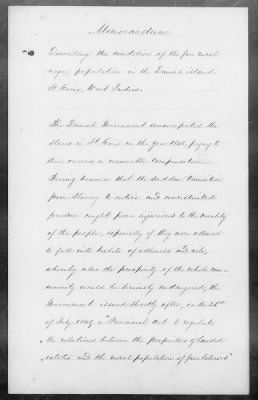 Memorandum
Describing the condition of the free rural
negro population in the Danish island
St. Croix, West Indies.
The Danish Government emancipated the
slaves in St Croix in the year 1848, paying to
their owners a reasonable compensation.
Fearing however that the sudden transition
from Slavery to entire and unrestricted
freedom might prove injurious to the morality
of the people, especially if they were allowed
to fall into habits of idleness and vice,
whereby also the prosperity of the whole com-
munity would be seriously endangered, the
Government issued shortly after, on the 26th
of July 1849, a "Provisional Act to regulate
"the relations between the proprietors of landed
"estates and the rural population of free laborers"